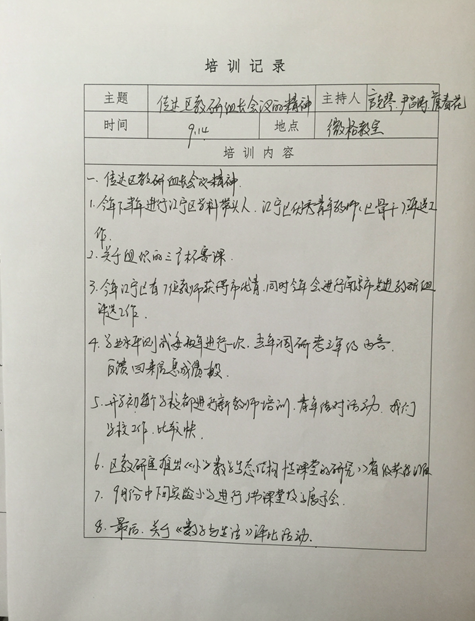 培训记录
主题 传达区教研组长会议的精神 主持人 尹昌鸿
时间 9.14 地点 微格教室
培训内容
一、传达区教研组长会议精神
1.今年下半年进行江宁区学科带头人、江宁区优秀青年教师(区骨干)评选工
作.
2.关于组织的三个杯赛课.
3.今年江宁区有7位教师获得市优青,同时今年会进行南京市先进教研组
评选工作.
4.学业水平测试每两年进行一次.
反馈回来信息或简报.
5.开学初每个学校都进行新教师培训,青年结对活动,我们
学校工作比较快.
6.区教研室推出《小学数学生态结构性课堂的研究》
7.9月份中下旬实验小学进行1节课堂教学展示会.
8.最后,关于《数学与生活》评比活动.